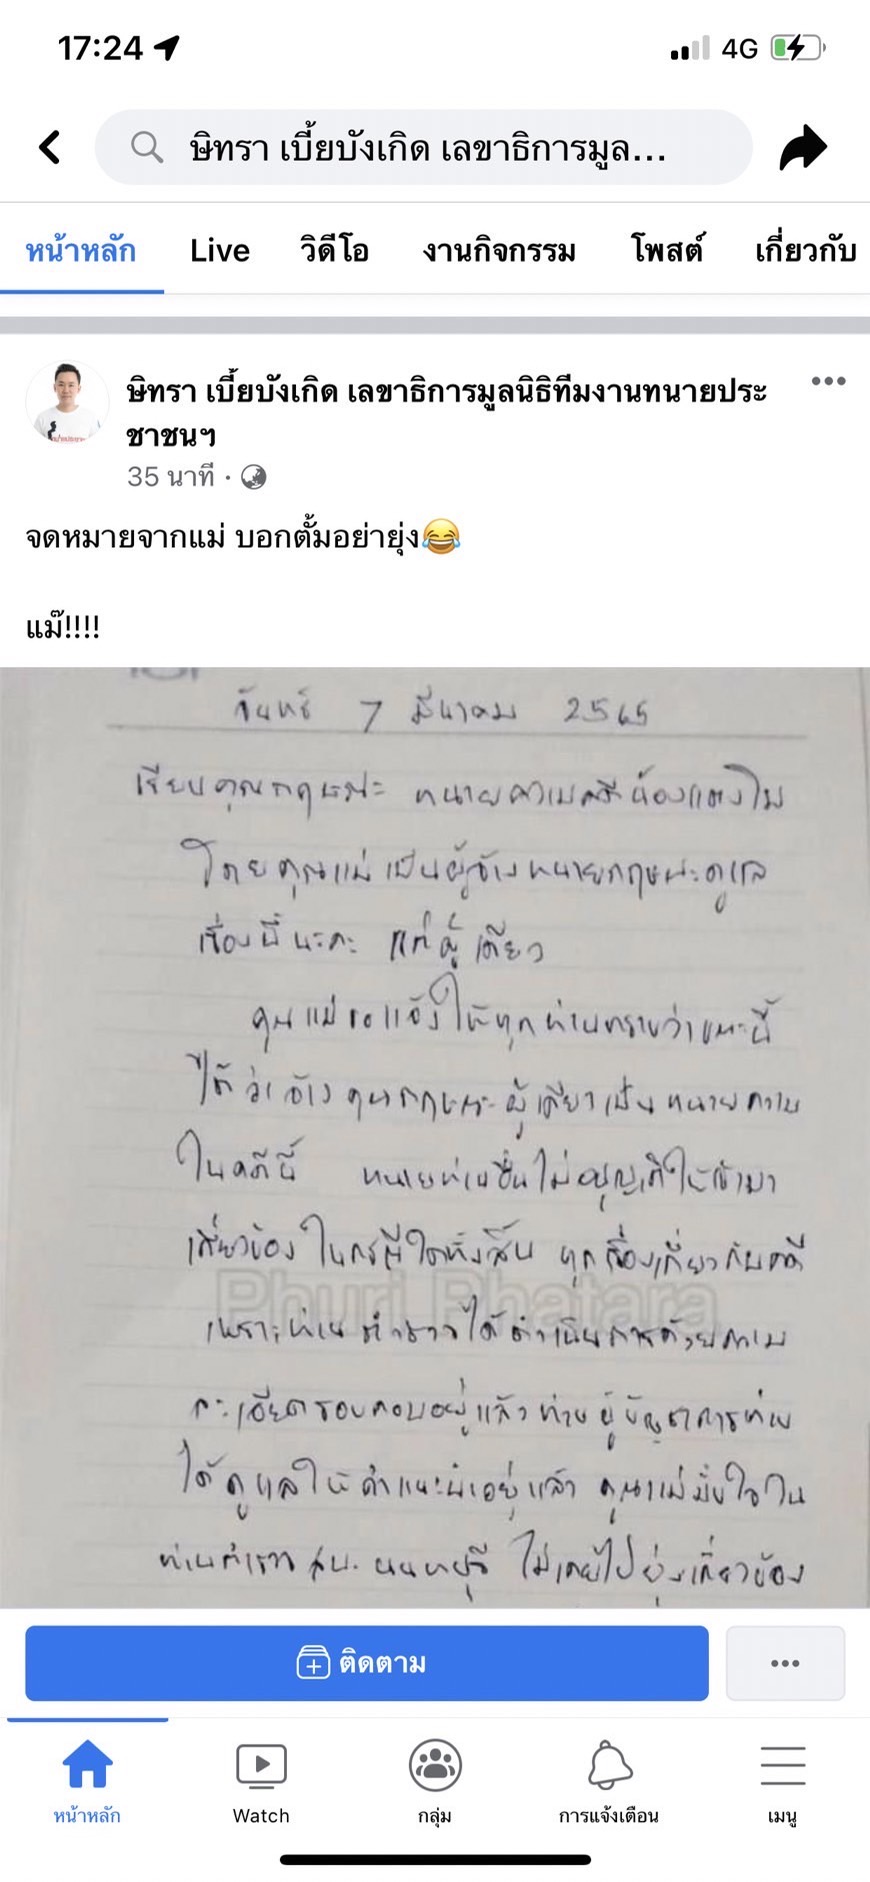 17:24
4G
ษิทรา เบี้ยบังเกิด เลขาธิการมูล...
หน้าหลัก Live วิดีโอ งานกิจกรรม โพสต์ เกี่ยวกับ
ษิทรา เบี้ยบังเกิด เลขาธิการมูลนิธิทีมงานทนายประ
ชาชนฯ
35 นาที ·
จดหมายจากแม่ บอกตั้มอย่ายุ่ง😂
แม๊!!!!
จันทร์ 7 มีนาคม 2565
เรียนคุณกฤษณะ ทนายความคดีน้องแตงโม
โดยคุณแม่เป็นผู้จ้างทนายกฤษณะดูแล
เรื่องนี้นะคะ แต่ผู้เดียว
คุณแม่ขอแจ้งให้ทุกท่านทราบว่าขณะนี้
ได้ว่าจ้างคุณกฤษณะผู้เดียวเป็นทนายความ
ในคดีนี้ ทนายท่านอื่นไม่อนุญาติให้เข้ามา
เกี่ยวข้องในกรณีใดทั้งสิ้น ทุกเรื่องเกี่ยวกับคดี
Phuri Phatara
เพราะท่านตำรวจได้ดำเนินการด้วยความ
ละเอียดรอบคอบอยู่แล้วท่านผู้บัญชาการท่าน
ได้ดูแลให้คำแนะนำอยู่แล้ว คุณแม่มั่นใจใน
ท่านตำรวจ สภ. นนทบุรี ไม่เคยไปยุ่งเกี่ยวข้อง
ติดตาม
หน้าหลัก Watch กลุ่ม การแจ้งเตือน เมนู